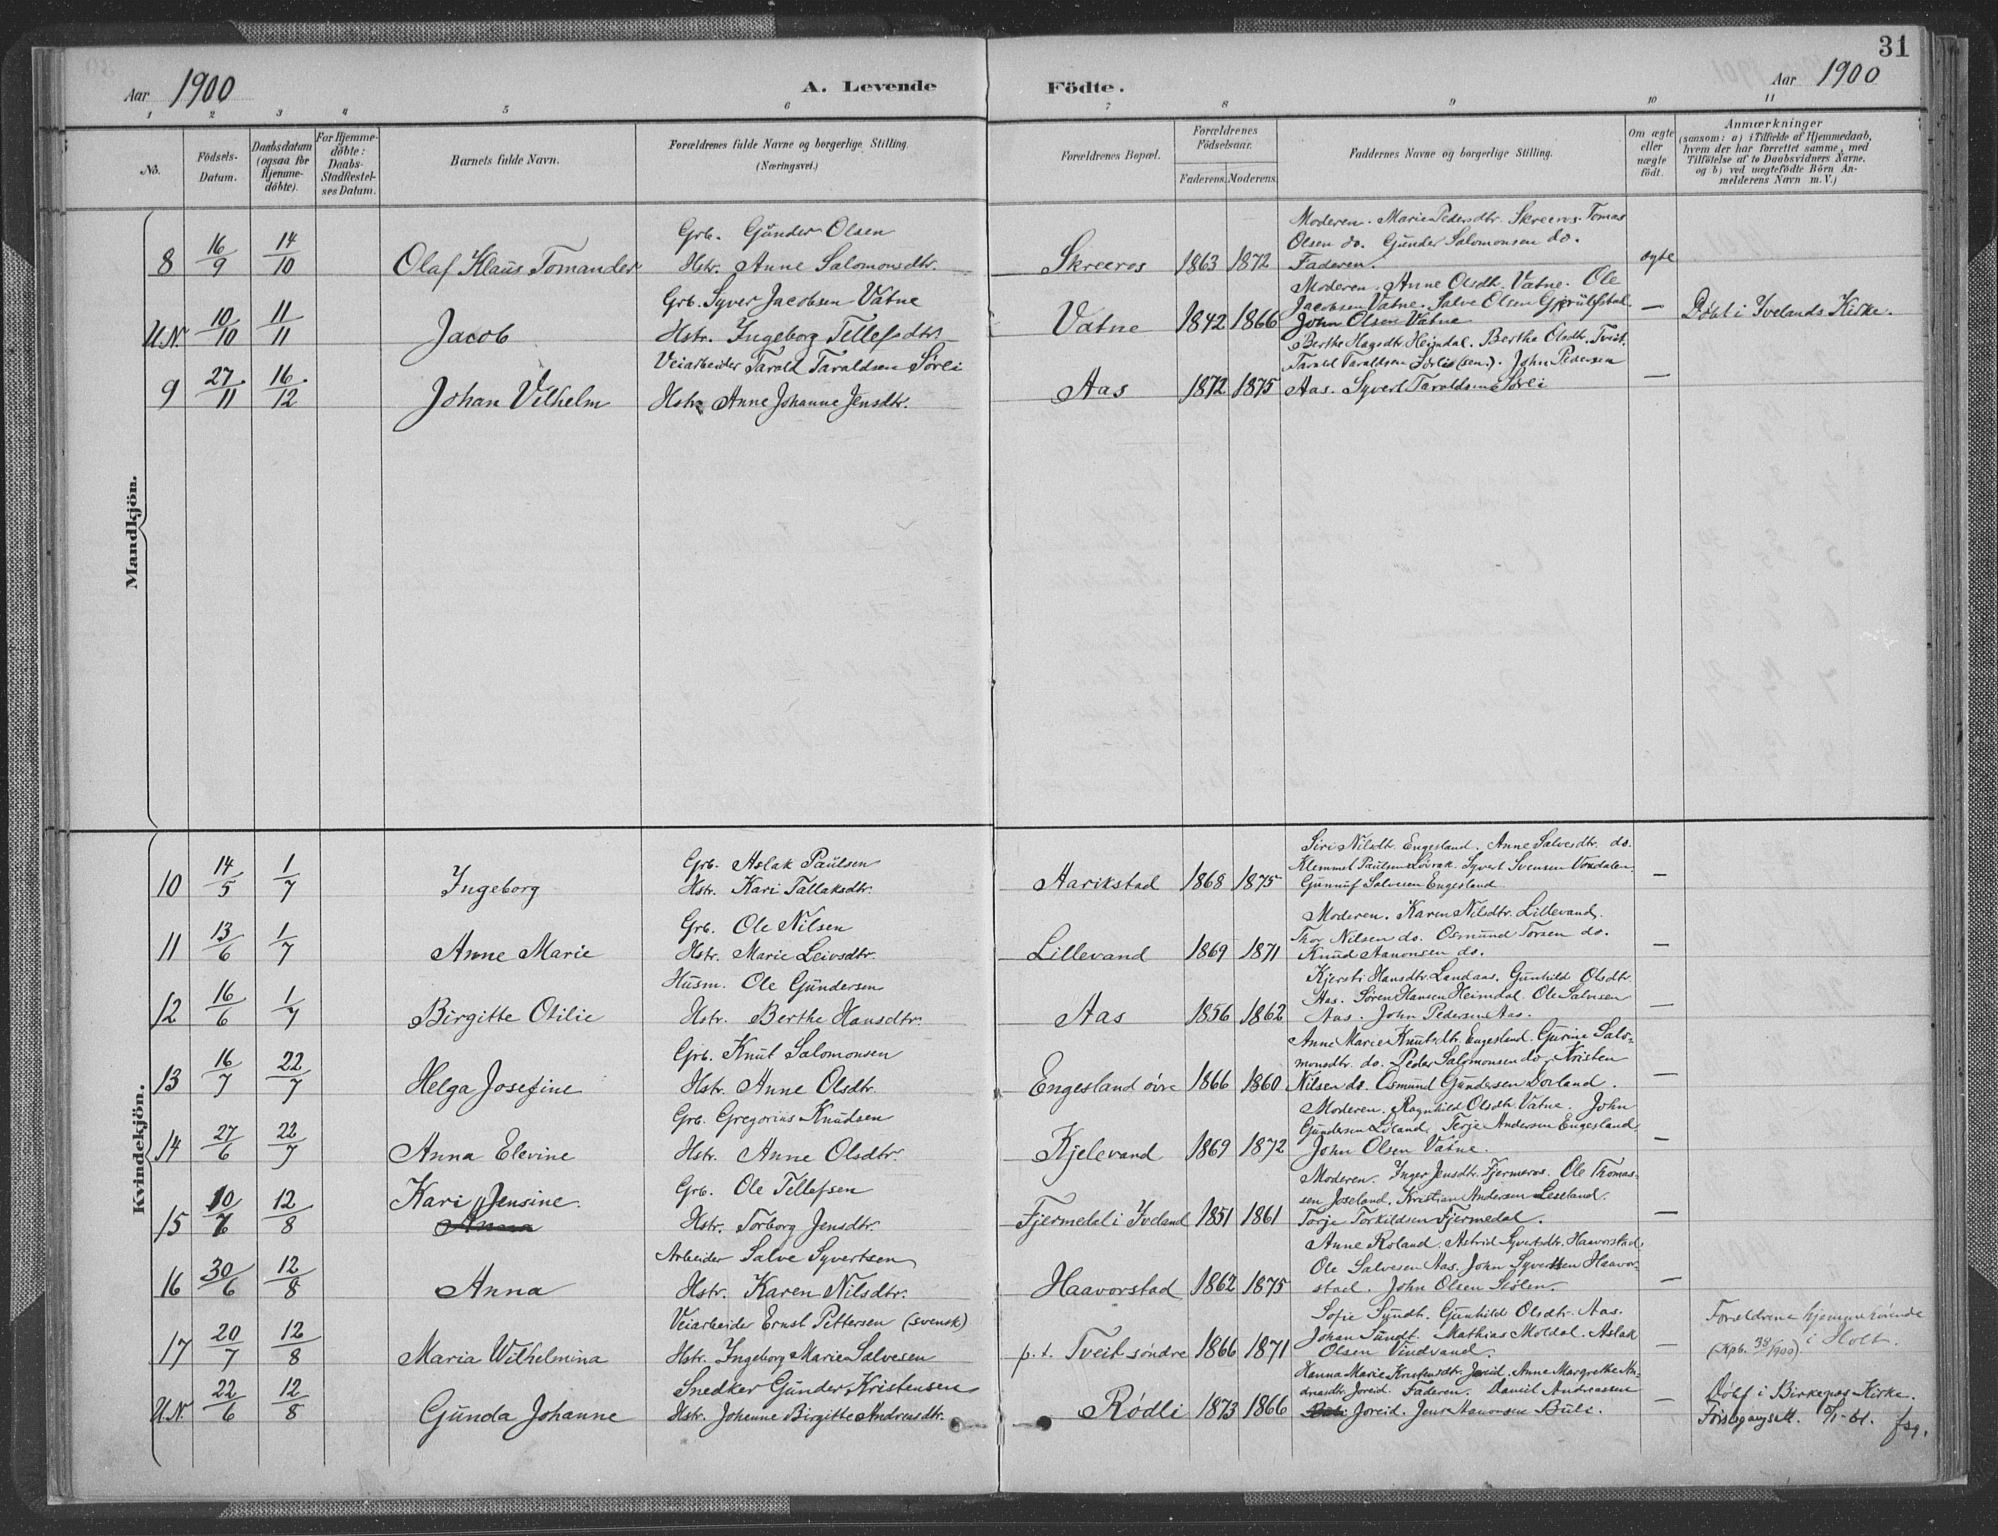 31
Aar 1900
A. Levende Födte.
Aar 1900
1 2 3 4 5 6 7 8 9 10 11
No.
Födsels-Datum.
Daabsdatum (ogsaa for Hjemme-döbte).
For Hjemme-döbte: Daabs-Stadfæstel-ses Datum.
Barnets fulde Navn.
Forældrenes fulde Navne og borgerlige Stilling.
(Næringsvei.)
Forældrenes Bopæl.
Forældrenes Födselsaar.
Faderens. Moderens.
Faddernes Navne og borgerlige Stilling.
Om ægte eller uægte födt.
Anmærkninger
(saasom: a) i Tilfælde af Hjemmedaab,
hvem der har forrettet samme, med
Tilföielse af to Daabsvidners Navne.
og b) ved uægtefödte Börn An-
melderens Navn m. V.)
Mandkjön.
8 16/9 14/10 Olaf Klaus Tomander
Grb. Gunder Olsen
Hstr. Anne Salomonsdtr.
Skreeros 1863 1872
Moderen. Marie Pedersdtr. Skreeros. Tomas
Olsen do. Gunder Salomonsen do.
Faderen.
ægte
U.N. 10/10 11/11 Jacob
Grb. Syver Jacobsen Vatne
Hstr. Ingeborg Tellefsdtr.
Vatne 1842 1866
Moderen. Anne Olsdtr. Vatne. Ole
Jacobsen Vatne. Salve Olsen
John Olsen Vatne
—
Döbt i Ivelands Kirke.
9 27/11 16/12 Johan Vilhelm
Veiarbeider Tarald Taraldsen Sörli
Hstr. Anne Johanne Jensdtr.
Aas 1872 1875
Berthe Hagsdtr. Heimdal. Berthe Olsdtr. Tveit.
Tarald Taraldsen Sörli (sen.). John Pedersen
Aas. Syvert Taraldsen Sörli
—
Kvindekjön.
10 14/5 1/7 Ingeborg
Grb. Aslak Paulsen
Hstr. Kari Tallaksdtr.
Aarikstad 1868 1875
Siri Nilsdtr. Engesland. Anne Salvesdtr. do.
Klemmet Paulsen Lövrak. Syvert Svensen
Gunnuf Salvesen Engesland.
—
11 13/6 1/7 Anne Marie
Grb. Ole Nilsen
Hstr. Marie Leivsdtr.
Lillevand 1869 1871
Moderen. Karen Nilsdtr. Lillevand.
Thor Nilsen do. Osmund Torsen do.
Knud Aanonsen do.
—
12 16/6 1/7 Birgitte Otilie
Husm. Ole Gundersen
Hstr. Berthe Hansdtr.
Aas 1856 1862
Kjersti Hansdtr. Landaas. Gunhild Olsdtr.
Aas. Sören Hansen Heimdal. Ole Salvesen
Aas. John Pedersen Aas.
—
13 16/7 22/7 Helga Josefine
Grb. Knut Salomonsen
Hstr. Anne Olsdtr.
Engesland övre 1866 1860
Anne Marie Knutsdtr. Engesland. Gurine Salo-
monsdtr. do. Peder Salomonsen do. Kristen
Nilsen do. Osmund Gundersen Dovland.
—
14 27/6 22/7 Anna Elevine
Grb. Gregorius Knudsen
Hstr. Anne Olsdtr.
Kjelevand 1869 1872
Moderen. Ragnhild Olsdtr. Vatne. John
Gundersen Löland. Terje Andersen Engesland.
John Olsen Vatne.
—
15 10/6 12/8 Kari Jensine.
Anna
Grb. Ole Tellefsen
Hstr. Torborg Jensdtr.
Fjermedal i Iveland 1851 1861
Moderen. Inger Jensdtr. Fjermeros. Ole Thomas-
sen Joseland. Kristian Andersen Leseland.
Torje Torkildsen Fjermedal.
—
16 30/6 12/8 Anna
Arbeider Salve Syvertsen
Hstr. Karen Nilsdtr.
Haavorstad 1862 1875
Anne Roland. Astrid Syvertsdtr. Haavorstad.
Ole Salvesen Aas. John Syvertsen Haavor-
stad. John Olsen Stölen.
—
17 20/7 12/8 Maria Wilhelmina
Veiarbeider Ernst Pettersen (svensk)
Hstr. Ingeborg Marie Salvesen
p. t. Tveit söndre 1866 1871
Sofie Syndt. Gunhild Olsdtr. Aas.
Johan Sundt. Mathias Moldal. Aslak
Olsen Vindvand.
—
Forældrene hjemmehörende
i Holt.
(Kpb. 38/1900)
U.N. 22/6 12/8 Gunda Johanne
Snedker Gunder Kristensen
Hstr. Johanne Birgitte Andreasdtr.
Rödli 1873 1866
Hanna Marie Kristensdtr. Joreid. Anne Margrethe An-
dreasdtr. Joreid. Faderen. Daniel Andreassen
Joreid. Jens Aanonsen Buli.
—
Döbt i Birkenæs Kirke.